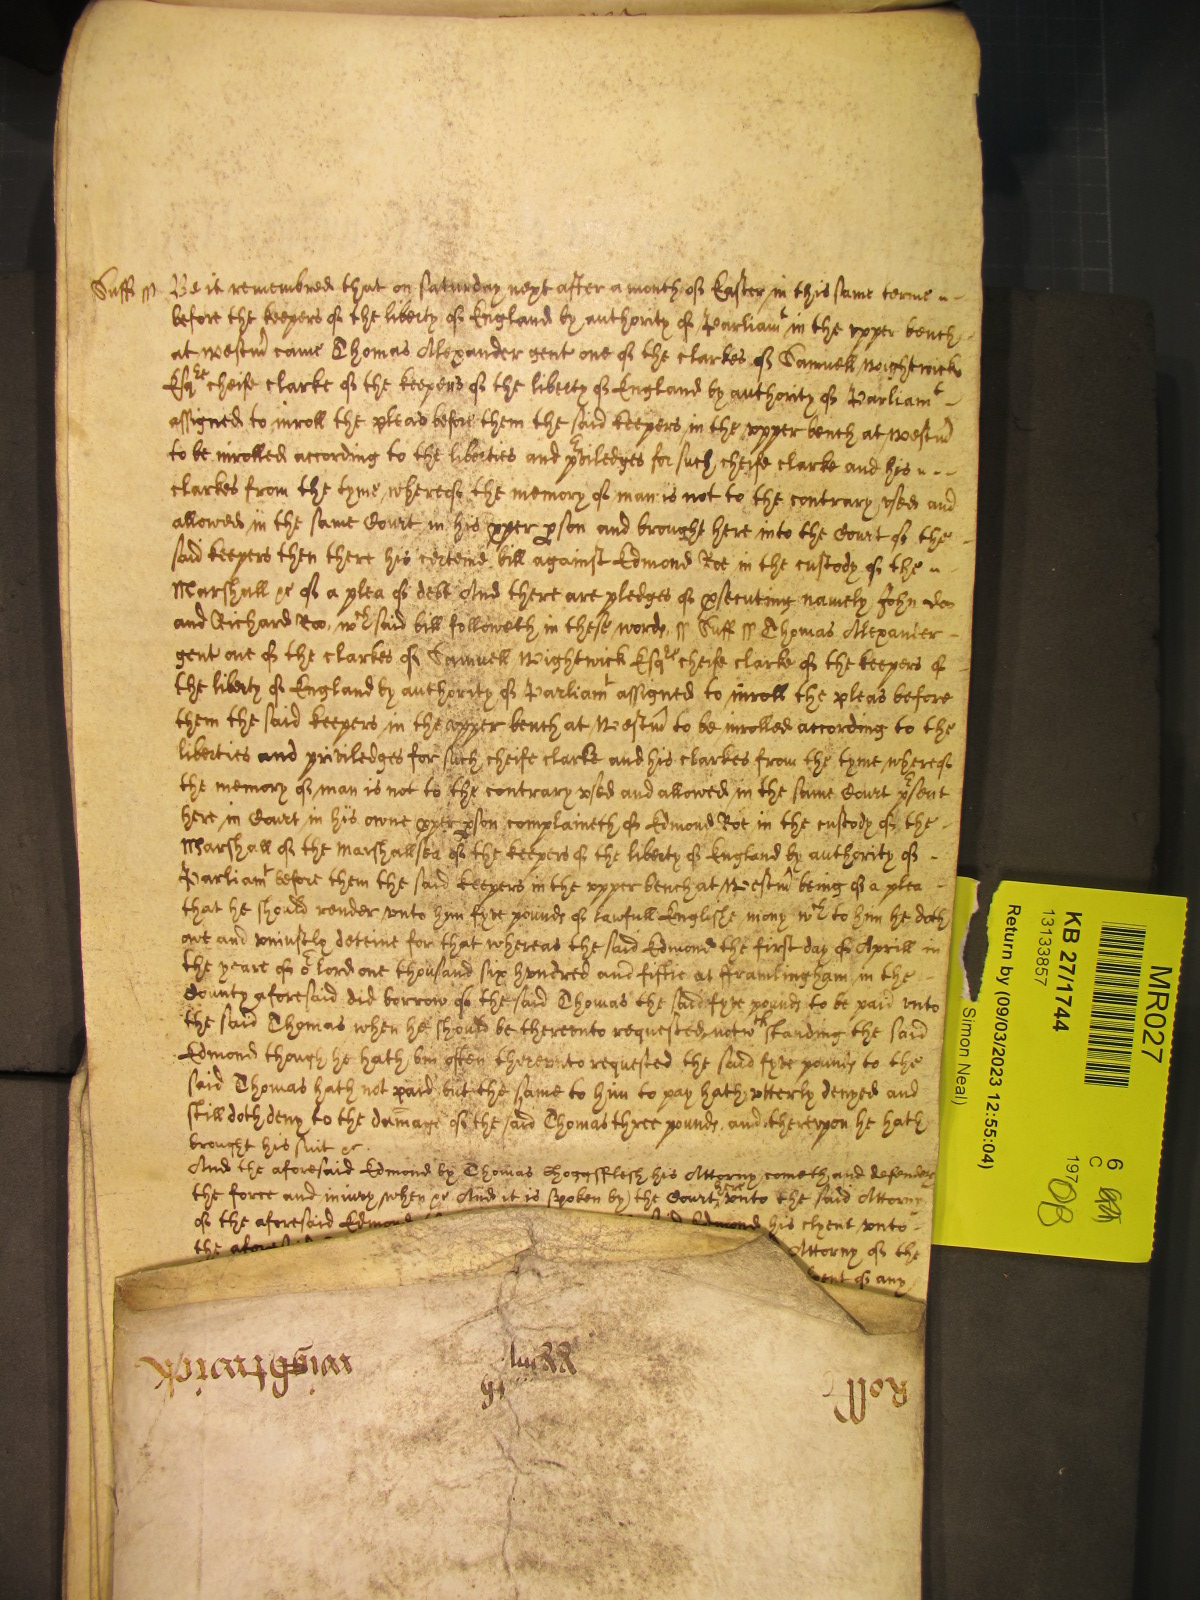 Suff ss Be it remembred that on Saturday next after a month of Easter in this same terme
before the keepers of the liberty of England by authority of Parliamt in the vpper bench
at Westm came Thomas Alexander gent one of the clarkes of Samuell Wightwick
Esqre cheife clarke of the keepers of the liberty of England by authority of Parliamt
assigned to inroll the pleas before them the said keepers in the vpper bench at Westm
to be inrolled according to the liberties and priledges for such cheife clarke and his
clarkes from the tyme whereof the memory of man is not to the contrary vsed and
allowed in the same Court in his pper pson and brought here into the Court of the
said keepers then there his certeine bill against Edmond Roe in the custody of the
Marshall &c of a plea of debt And there are pledges of psecuting namely John Doo
and Richard Roo, wch said bill followeth in these words, ss Suff ss Thomas Alexander
gent one of the clarkes of Samuell Wightwick Esqre cheife clarke of the keepers of
the liberty of England by authority of Parliamt assigned to inroll the pleas before
them the said keepers in the vpper bench at Westm to be inrolled according to the
liberties and priviledges for such cheife clarke and his clarkes from the tyme whereof
the memory of man is not to the contrary vsed and allowed in the same Court psent
here in Court in his owne pper pson complaineth of Edmond Roe in the custody of the
Marshall of the Marshallsea of the keepers of the liberty of England by authority of
Parliamt before them the said keepers in the vpper bench at Westm being of a plea
that he should render vnto hym fyve pounds of lawfull Englishe mony wch to him he doth
owe and vniustly deteine for that whereas the said Edmond the first day of Aprill in
the yeare of or lord one thousand six hundred and fiftie at Framlingham in the
County aforesaid did borrow of the said Thomas the said fyve pounds to be paid vnto
the said Thomas when he should be therevnto requested, notwthstanding the said
Edmond though he hath bin often therevnto requested the said fyve pounds to the
said Thomas hath not paid, but the same to him to pay hath vtterly denyed and
still doth deny to the damage of the said Thomas three pounds, and therevpon he hath
brought his suit &c
And the aforesaid Edmond by Thomas Hoggsflesh his Attorny cometh and defendes
the force and iniury when &c And it is spoken by the Court here vnto the said Attorny
of the aforesaid Edmond said Edmond his clyent vnto
the aforesaid Attorny of the
of any
Roll
wightwick
MR027
KB 27/1744
13133857
Return by (09/03/2023 12:55:04)
Simon Neal)
6
C
197